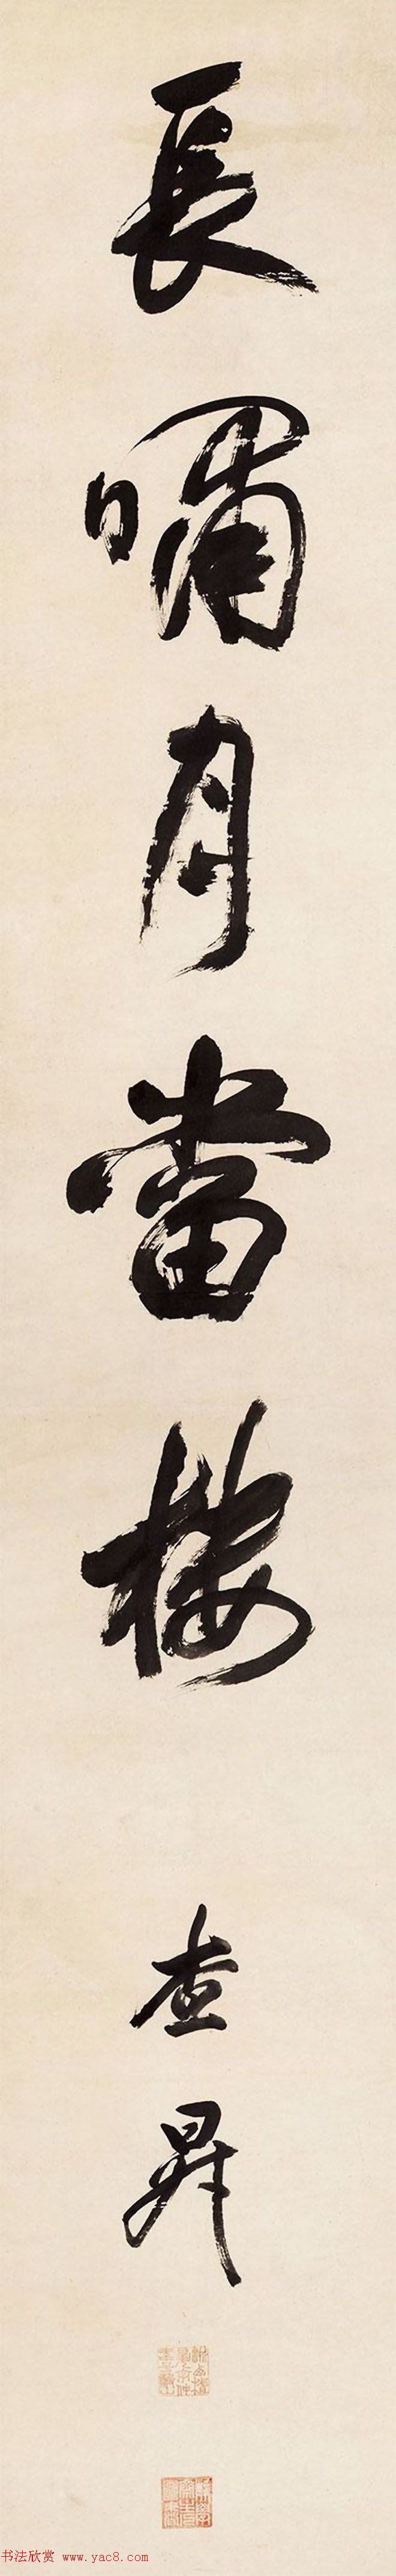 長嘯月當樓
查昇
书法欣赏 www.yac8.com